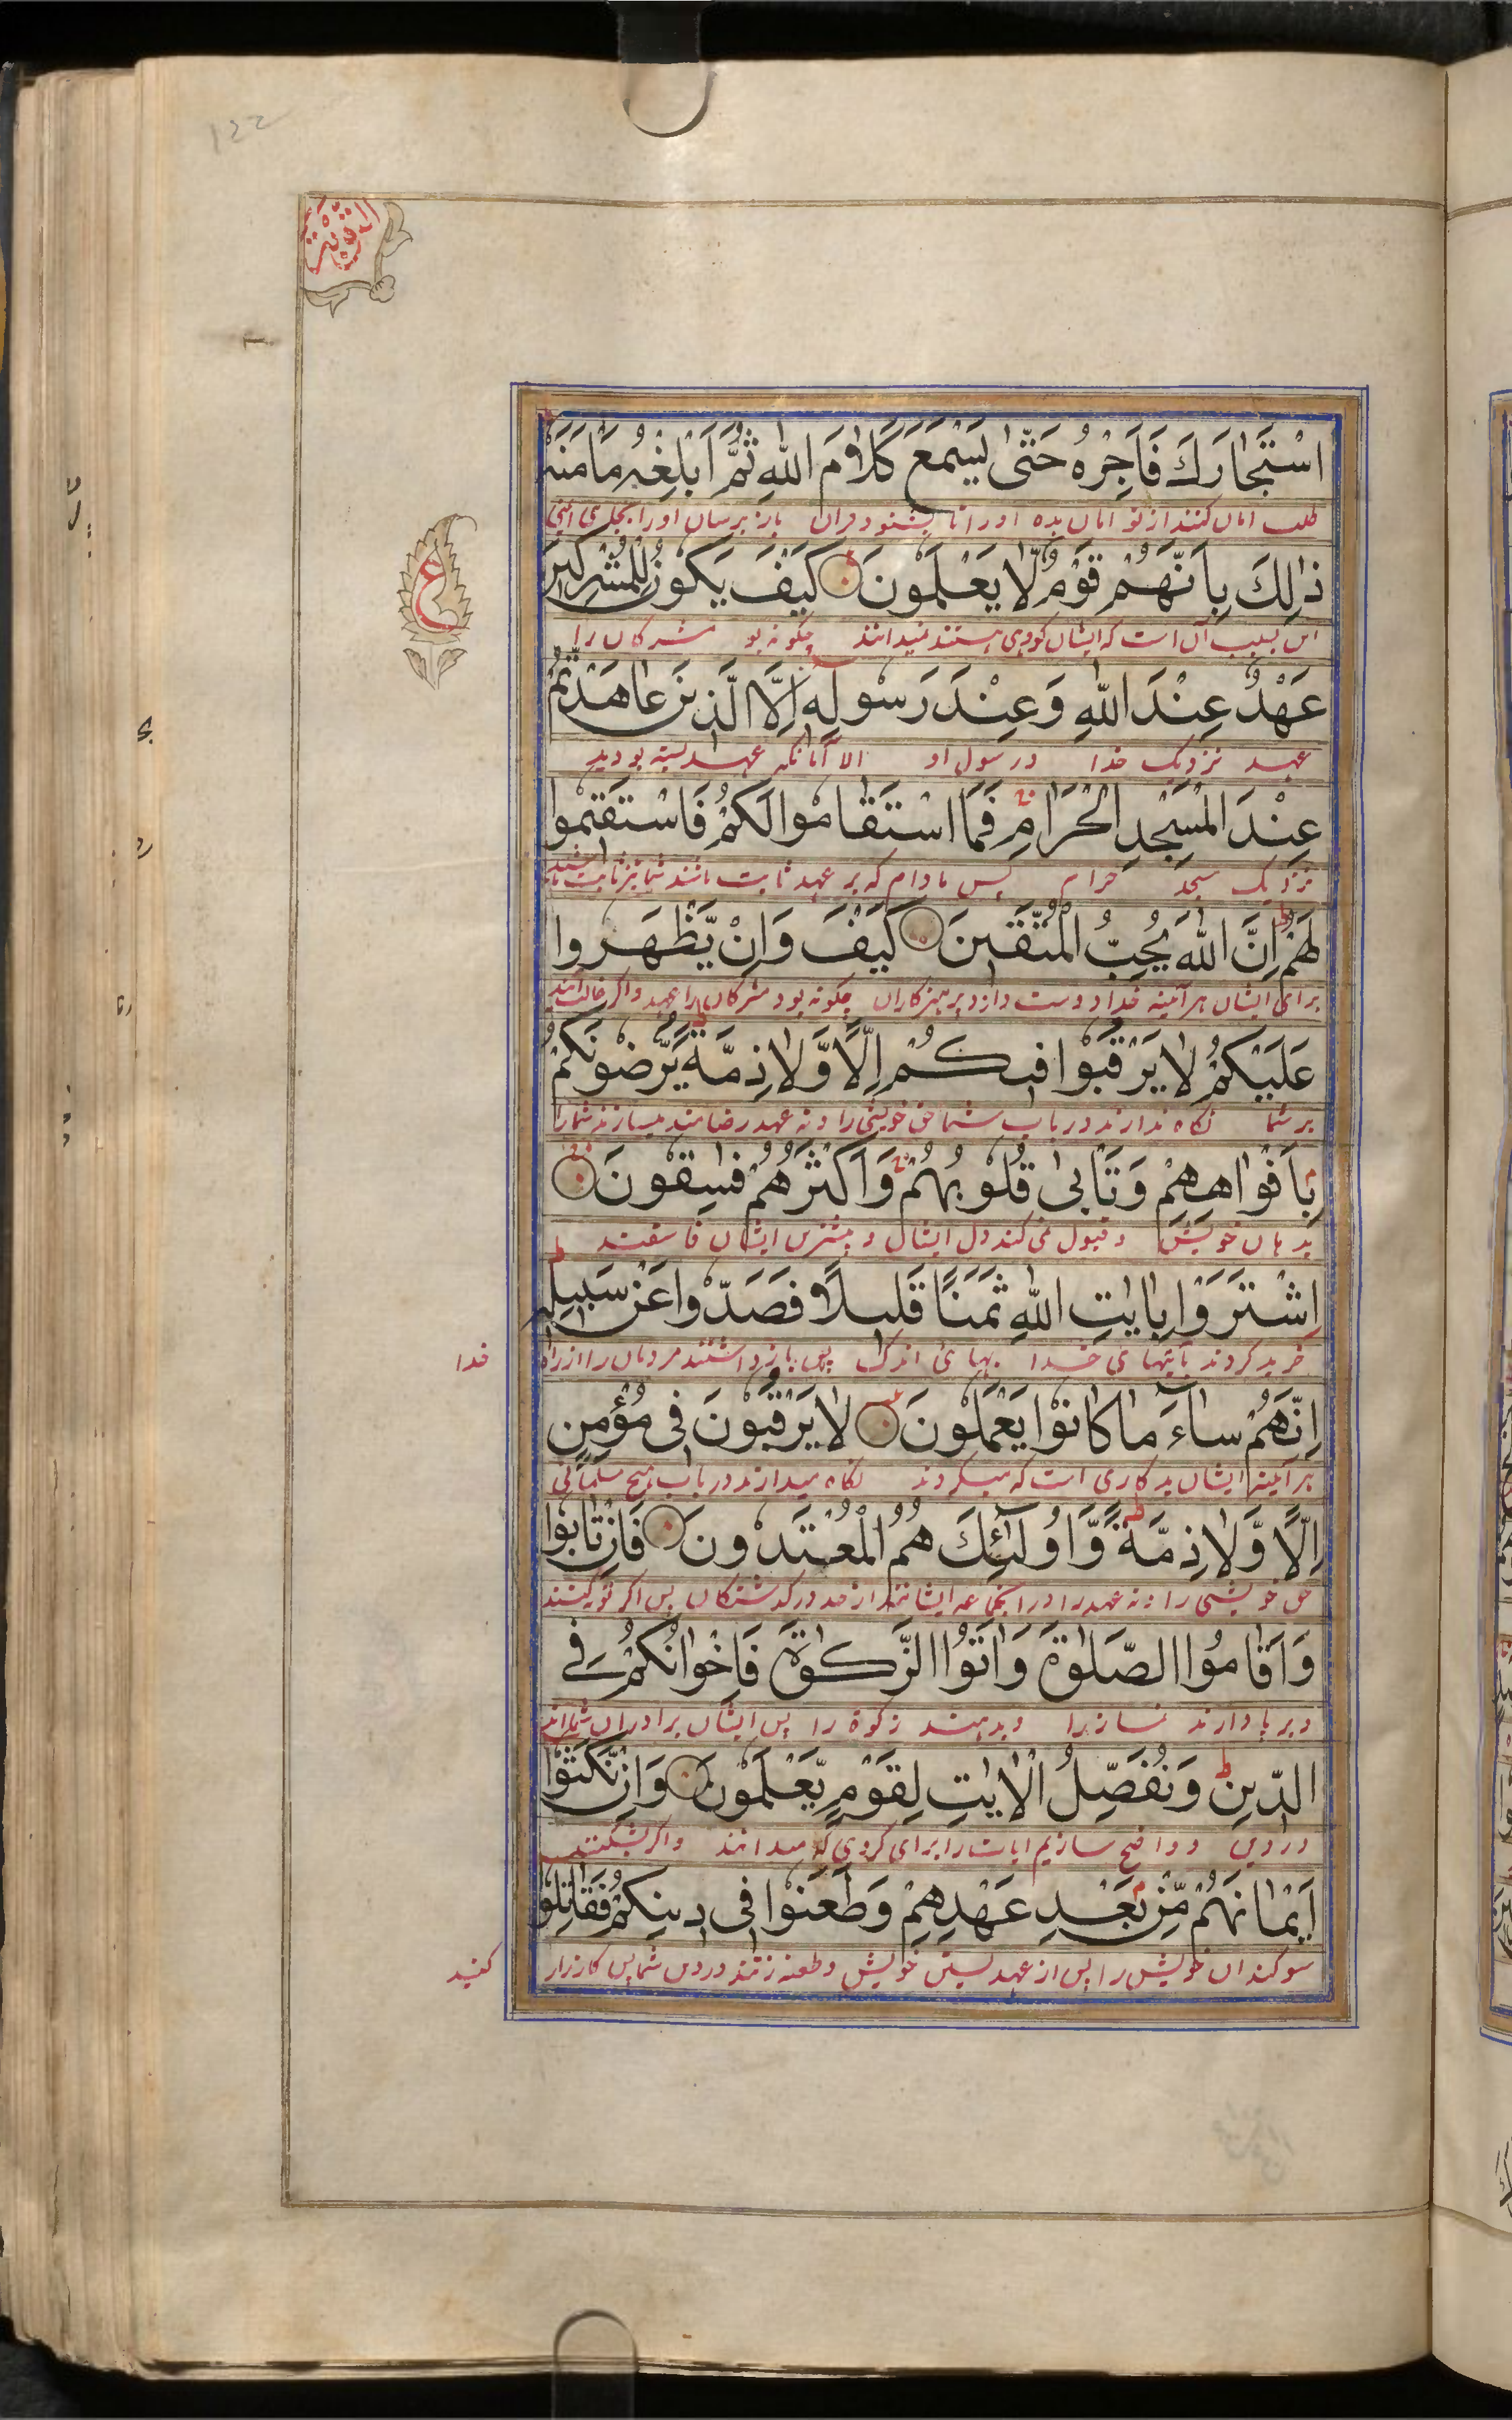 122
التوبة
اسْتَجَارَكَ فَاَجِرْهُ حَتّٰى يَسْمَعَ كَلَامَ اللّٰهِ ثُمَّ اَبْلِغْهُ مَاْمَنَهٗ
طلب امان کنند از تو امان بده او را تا بشنود قران باز برسان او را بجای امنی
ذٰلِكَ بِاَنَّهُمْ قَوْمٌ لَّا يَعْلَمُونَ كَيْفَ يَكُونُ لِلْمُشْرِكِينَ
این بسبب آن است که ایشان گروهی هستند نمیدانند چگونه بود مشرکان را
ع
عَهْدٌ عِنْدَ اللّٰهِ وَعِنْدَ رَسُولِهٖ اِلَّا الَّذِينَ عَاهَدْتُّمْ
عهد نزدیک خدا و رسول او الا آنانکه عهد بسته بودید
عِنْدَ الْمَسْجِدِ الْحَرَامِ فَمَا اسْتَقَامُوا لَكُمْ فَاسْتَقِيمُوا
نزدیک مسجد حرام پس مادام که بر عهد ثابت باشند شما نیز ثابت باشید
لَهُمْ اِنَّ اللّٰهَ يُحِبُّ الْمُتَّقِينَ كَيْفَ وَاِنْ يَّظْهَرُوا
برای ایشان هر آئینه خدا دوست دارد پرهیزکاران چگونه بود مشرکان را عهد و اگر غالب آیند
عَلَيْكُمْ لَا يَرْقُبُوا فِيكُمْ اِلًّا وَّلَا ذِمَّةً يُرْضُونَكُمْ
بر شما نگاه ندارند در باب شما حق خویشی را و نه عهد رضامند میسازند شما را
بِاَفْوَاهِهِمْ وَتَاْبٰى قُلُوبُهُمْ وَاَكْثَرُهُمْ فٰسِقُونَ
بدهان خویش و قبول نمی کند دل ایشان و بیشترین ایشان فاسقند
اِشْتَرَوْا بِاٰيٰتِ اللّٰهِ ثَمَنًا قَلِيلًا فَصَدُّوا عَنْ سَبِيلِهٖ
خرید کردند بآیتهای خدا بهای اندک پس باز داشتند مردمان را از راه خدا
اِنَّهُمْ سَاءَ مَا كَانُوا يَعْمَلُونَ لَا يَرْقُبُونَ فِى مُؤْمِنٍ
هر آئینه ایشان بد کاری است که میکردند نگاه نمیدارند در باب هیچ مسلمانی
اِلًّا وَّلَا ذِمَّةً وَّاُولٰئِكَ هُمُ الْمُعْتَدُونَ فَاِنْ تَابُوا
حق خویشی را و نه عهد را و این جماعه ایشانند از حد در گذشتگان پس اگر توبه کنند
وَاَقَامُوا الصَّلٰوةَ وَاٰتَوُا الزَّكٰوةَ فَاِخْوَانُكُمْ فِى
و بر پا دارند نماز را و بدهند زکوة را پس ایشان برادران شمااند
الدِّينِ وَنُفَصِّلُ الْاٰيٰتِ لِقَوْمٍ يَّعْلَمُونَ وَاِنْ نَّكَثُوا
در دین و واضح سازیم ایات را برای گروهی که میدانند و اگر بشکنند
اَيْمَانَهُمْ مِّنْ بَعْدِ عَهْدِهِمْ وَطَعَنُوا فِى دِينِكُمْ فَقَاتِلُوا
سوگندان خویش را پس از عهد بستن خویش و طعنه زنند در دین شما پس کارزار کنید